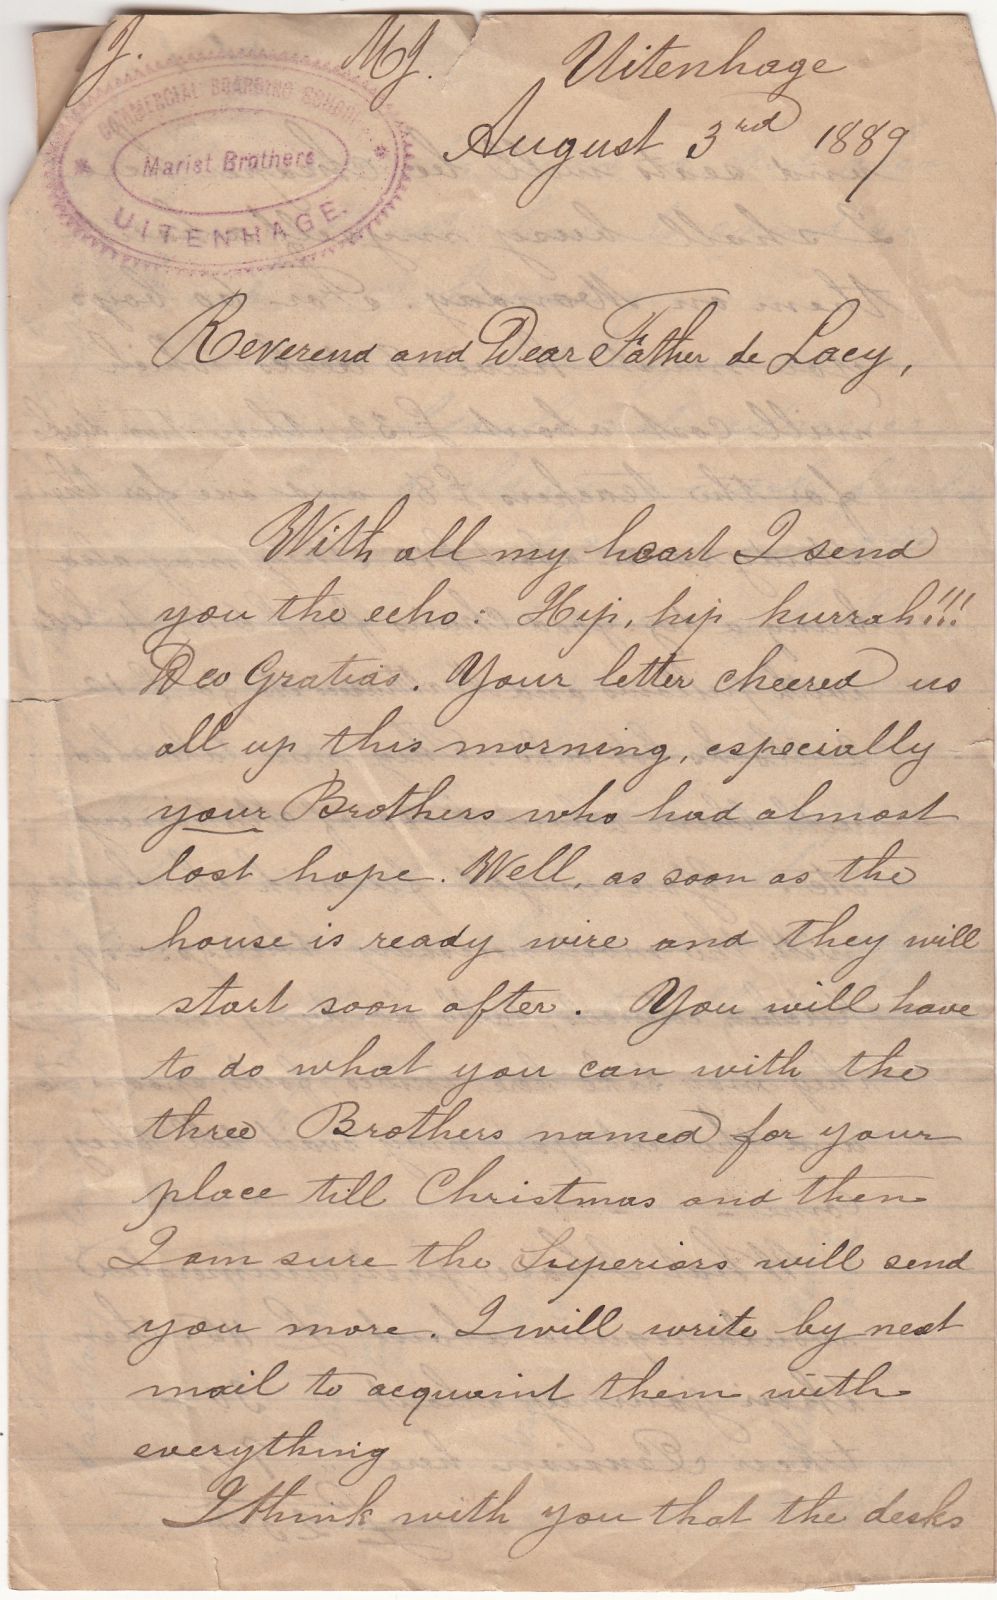 J. MJ. Uitenhage
COMMERCIAL BOARDING SCHOOL
Marist Brothers
UITENHAGE.
August 3rd 1889
Reverend and Dear Father de Lacy,
With all my heart I send
you the echo: Hip, hip hurrah!!!
Deo Gratias. Your letter cheered us
all up this morning, especially
your Brothers who had almost
lost hope. Well, as soon as the
house is ready wire and they will
start soon after. You will have
to do what you can with the
three Brothers named for your
place till Christmas and then
I am sure the Superiors will send
you more. I will write by next
mail to acquaint them with
everything
I think with you that the desks